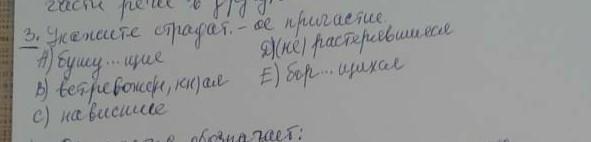 части речи в
3. Укажите страдат. - ое причастие.
А) бушу...щие Д) (не) растерявшиеся
В) встревожен(н, нн)ая Е) бор...щихся
С) нависшие
обозначает: